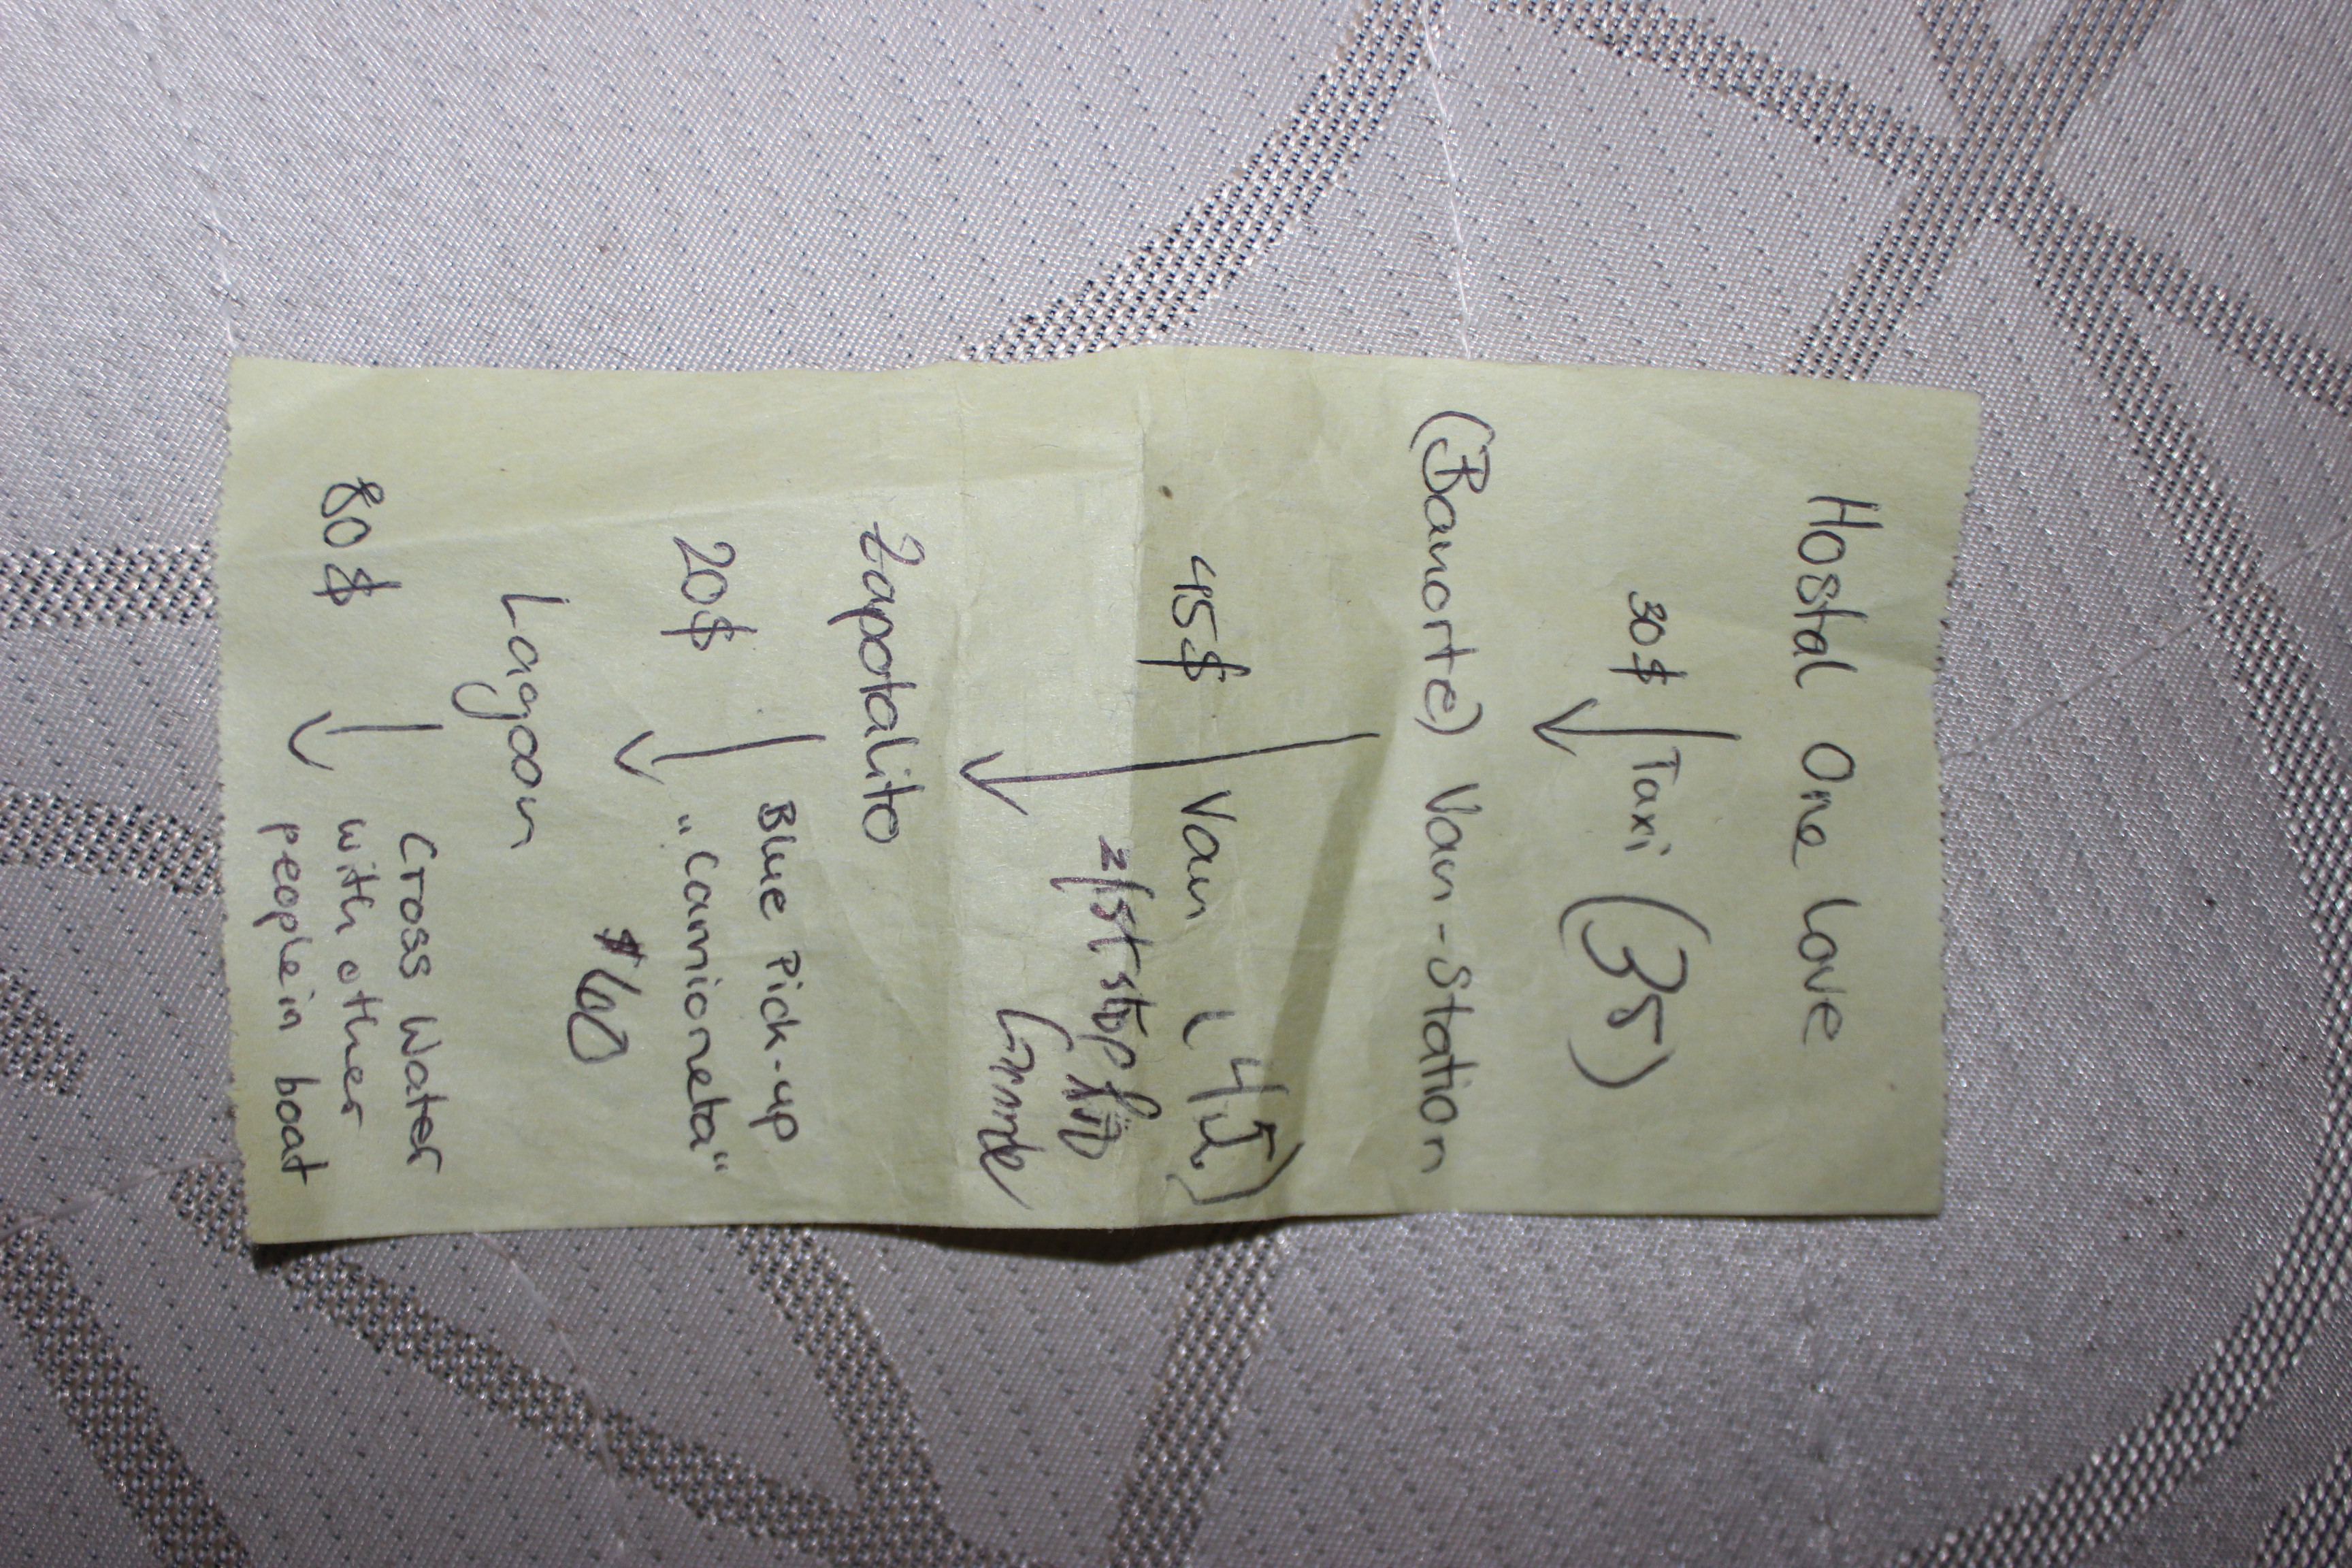 Hostal One Love
30$ Taxi (35)
(Banorte) Van-Station
45$ Van (45)
stop Río
Grande
Zapotalito
20$ Blue Pick-up
"Camioneta"
$60
Lagoon
80$ Cross Water
with other
people in boat